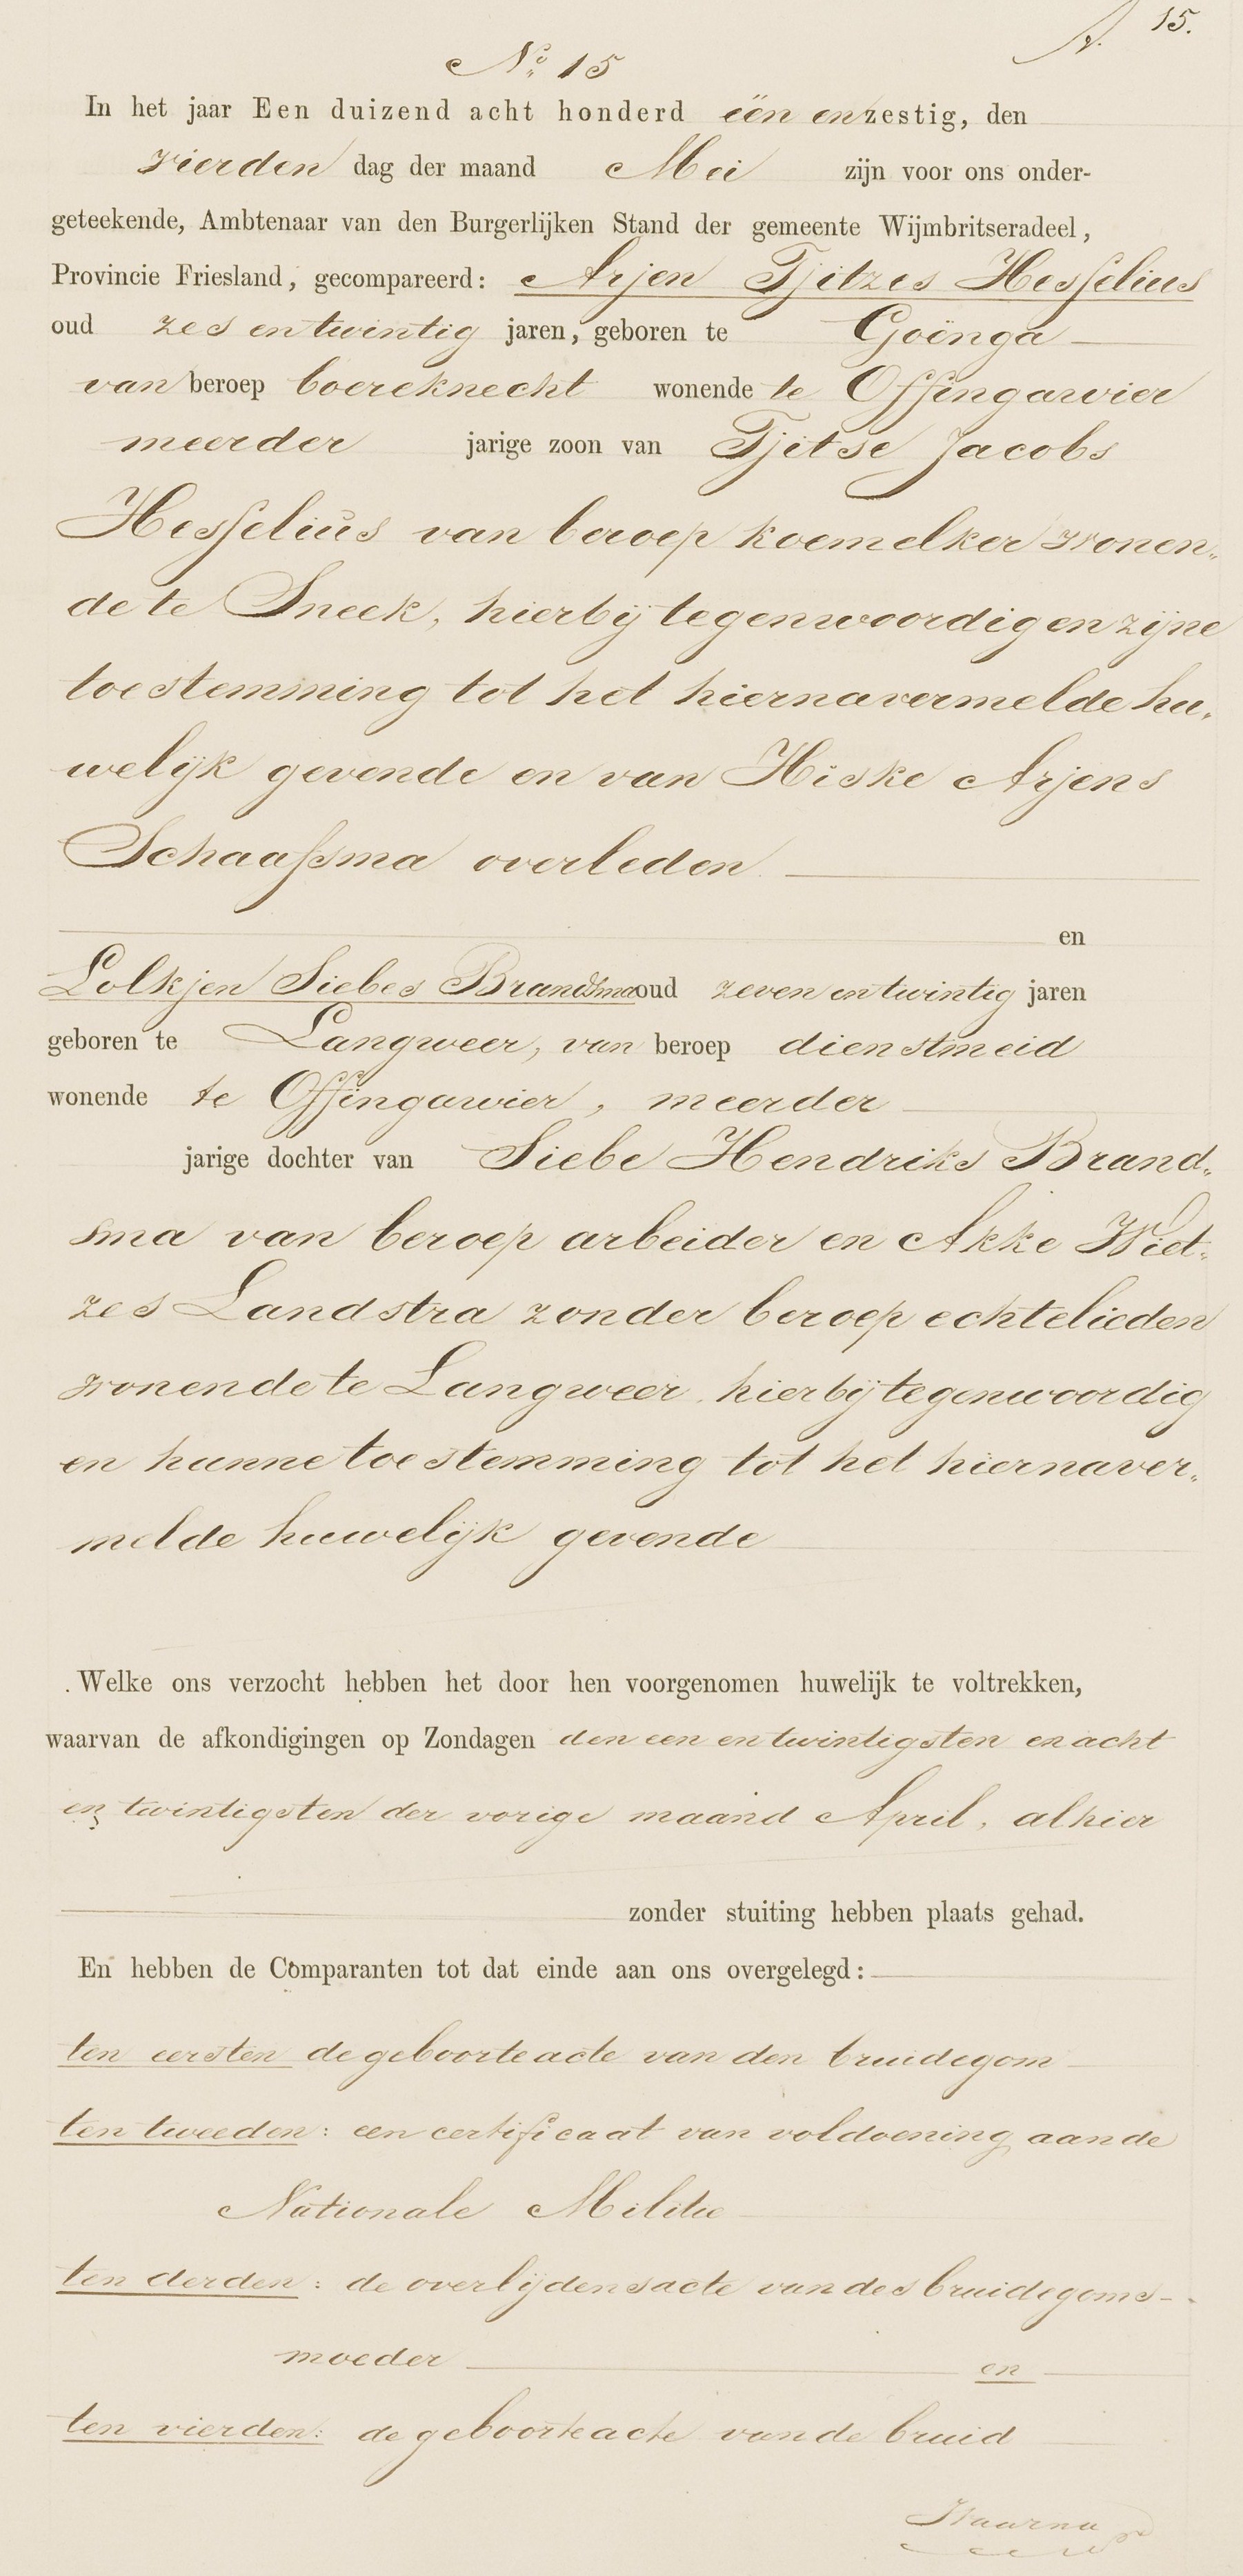 A. 15.
No. 15
In het jaar Een duizend acht honderd één en zestig, den
vierden dag der maand Mei zijn voor ons onder-
geteekende, Ambtenaar van den Burgerlijken Stand der gemeente Wijmbritseradeel,
Provincie Friesland, gecompareerd: Arjen Tjitzes Hesselius
oud zes en twintig jaren, geboren te Goënga
van beroep boereknecht wonende te Offingawier
meerder jarige zoon van Tjitse Jacobs
Hesselius van beroep koemelker wonen„
de te Sneek, hierbij tegenwoordig en zijne
toestemming tot het hiernavermelde hu„
welijk gevende en van Hiske Arjens
Schaafsma overleden
en
Lolkjen Siebes Brandsma oud zeven en twintig jaren
geboren te Langweer, van beroep dienstmeid
wonende te Offingawier, meerder
jarige dochter van Siebe Hendriks Brand„
sma van beroep arbeider en Akke Wiet„
zes Landstra zonder beroep echtelieden
wonende te Langweer hierbij tegenwoordig
en hunne toestemming tot het hiernaver„
melde huwelijk gevende
Welke ons verzocht hebben het door hen voorgenomen huwelijk te voltrekken,
waarvan de afkondigingen op Zondagen den een en twintigsten en acht
en twintigsten der vorige maand April, alhier
zonder stuiting hebben plaats gehad.
En hebben de Comparanten tot dat einde aan ons overgelegd:
ten eersten de geboorteacte van den bruidegom
ten tweeden: een certificaat van voldoening aan de
Nationale Militie
ten derden: de overlijdensacte van des bruidegoms-
moeder en
ten vierden: de geboorteacte van de bruid
Waarna